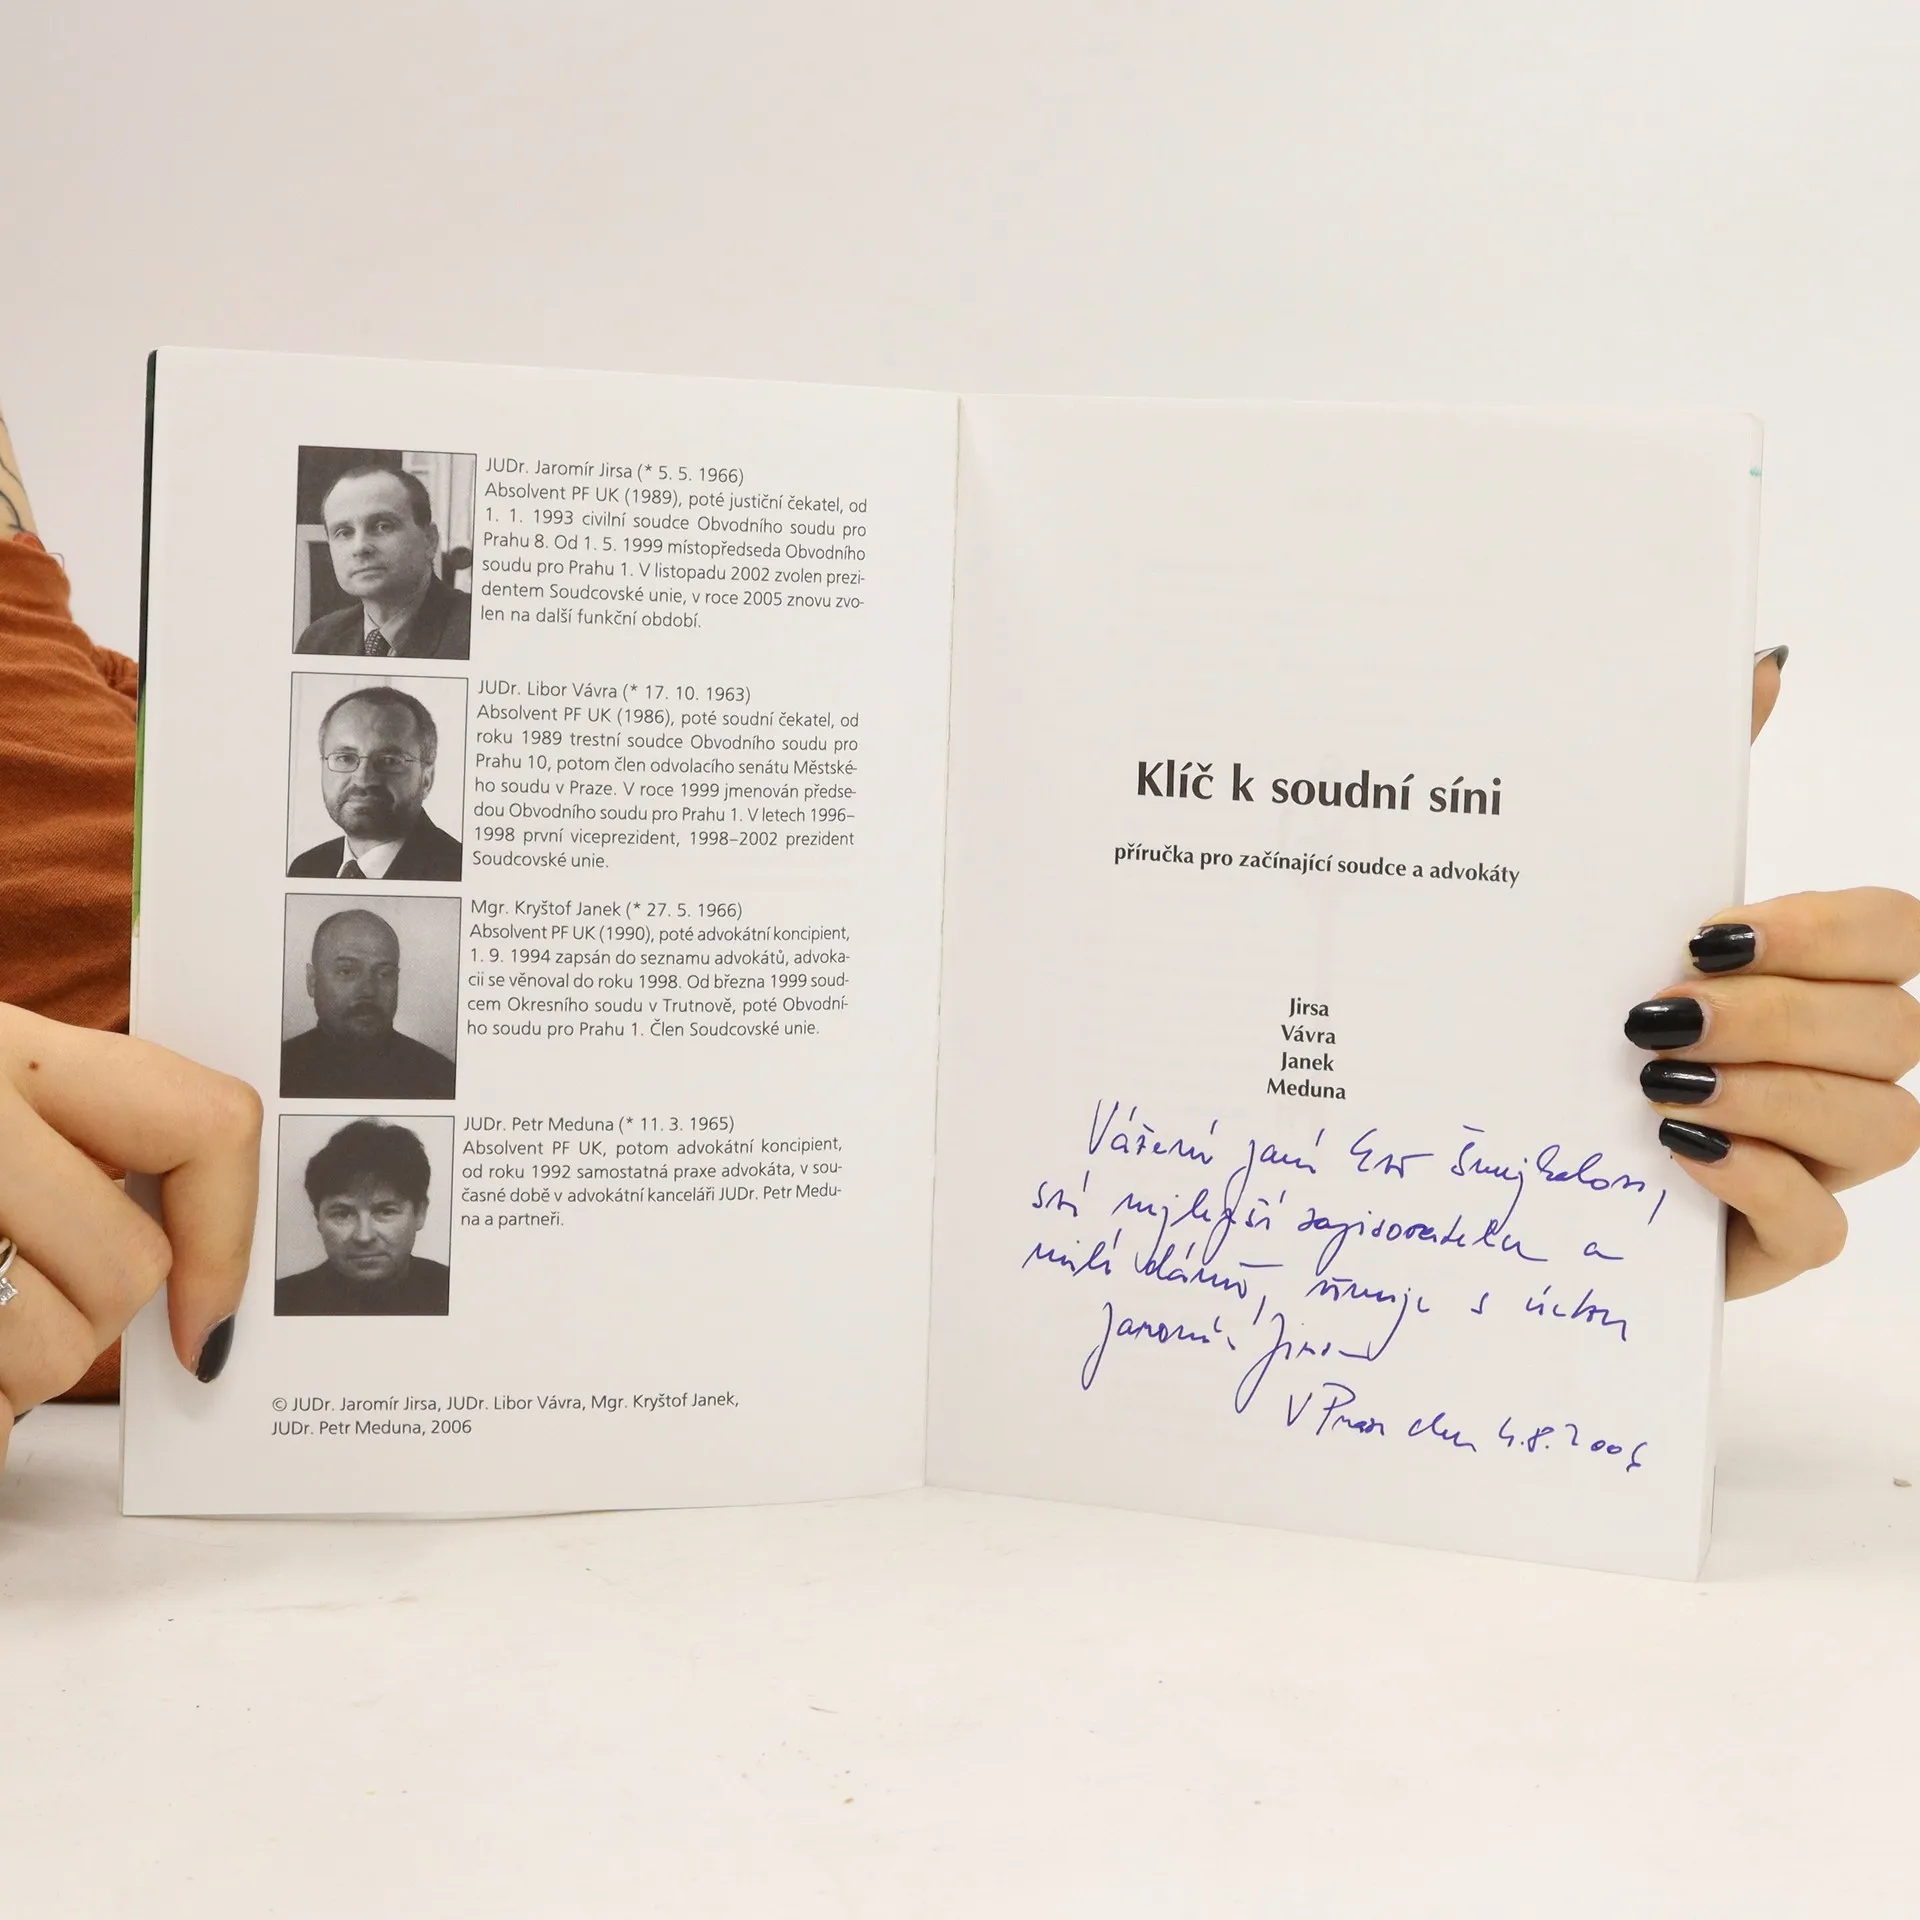 JUDr. Jaromír Jirsa (* 5. 5. 1966)
Absolvent PF UK (1989), poté justiční čekatel, od
1. 1. 1993 civilní soudce Obvodního soudu pro
Prahu 8. Od 1. 5. 1999 místopředseda Obvodního
soudu pro Prahu 1. V listopadu 2002 zvolen prezi-
dentem Soudcovské unie, v roce 2005 znovu zvo-
len na další funkční období.
JUDr. Libor Vávra (* 17. 10. 1963)
Absolvent PF UK (1986), poté soudní čekatel, od
roku 1989 trestní soudce Obvodního soudu pro
Prahu 10, potom člen odvolacího senátu Městské-
ho soudu v Praze. V roce 1999 jmenován předse-
dou Obvodního soudu pro Prahu 1. V letech 1996–
1998 první viceprezident, 1998–2002 prezident
Soudcovské unie.
Mgr. Kryštof Janek (* 27. 5. 1966)
Absolvent PF UK (1990), poté advokátní koncipient,
1. 9. 1994 zapsán do seznamu advokátů, advoka-
cii se věnoval do roku 1998. Od března 1999 soud-
cem Okresního soudu v Trutnově, poté Obvodní-
ho soudu pro Prahu 1. Člen Soudcovské unie.
JUDr. Petr Meduna (* 11. 3. 1965)
Absolvent PF UK, potom advokátní koncipient,
od roku 1992 samostatná praxe advokáta, v sou-
časné době v advokátní kanceláři JUDr. Petr Medu-
na a partneři.
© JUDr. Jaromír Jirsa, JUDr. Libor Vávra, Mgr. Kryštof Janek,
JUDr. Petr Meduna, 2006
Klíč k soudní síni
příručka pro začínající soudce a advokáty
Jirsa
Vávra
Janek
Meduna
Vážené paní Evě Šmejkalové,
své nejlepší zapisovatelce a
milé dámě, věnuje s úctou
Jaromír Jirsa
V Praze dne 4.8.2006